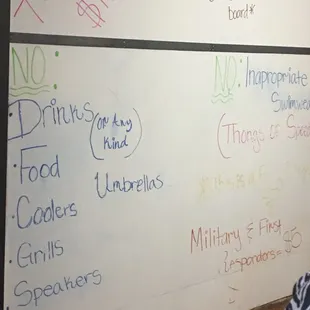 board*
NO:
• Drinks (or Any Kind)
• Food
Umbrellas
• Coolers
• Grills
• Speakers
NO: Inapropriate
Swimwear
(Thongs
Military & First
Responders =